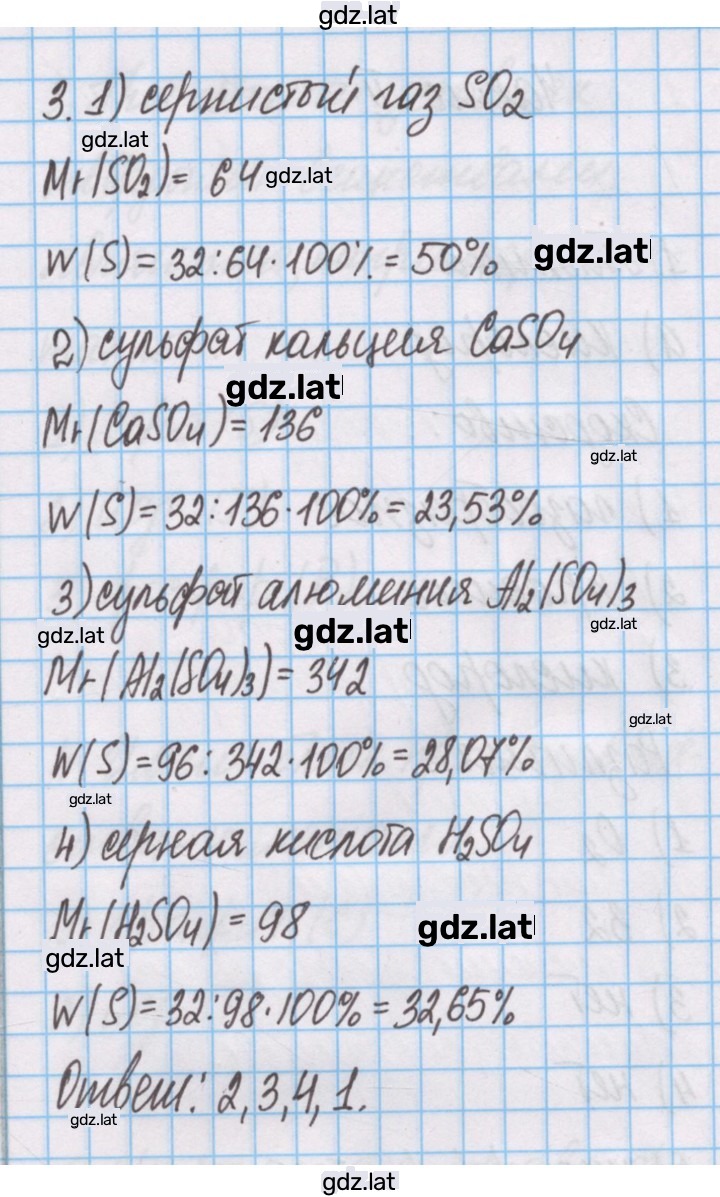 gdz.lat
3. 1) сернистый газ SO2
gdz.lat
Mr(SO2) = 64 gdz.lat
W(S) = 32:64·100% = 50% gdz.lat
2) сульфат кальция CaSO4
gdz.lat
Mr(CaSO4) = 136
gdz.lat
W(S) = 32:136·100% = 23,53%
3) сульфат алюминия Al2(SO4)3
gdz.lat gdz.lat gdz.lat
Mr(Al2(SO4)3) = 342
gdz.lat
W(S) = 96:342·100% = 28,07%
gdz.lat
4) серная кислота H2SO4
Mr(H2SO4) = 98 gdz.lat
gdz.lat
W(S) = 32:98·100% = 32,65%
Ответ: 2, 3, 4, 1.
gdz.lat
gdz.lat